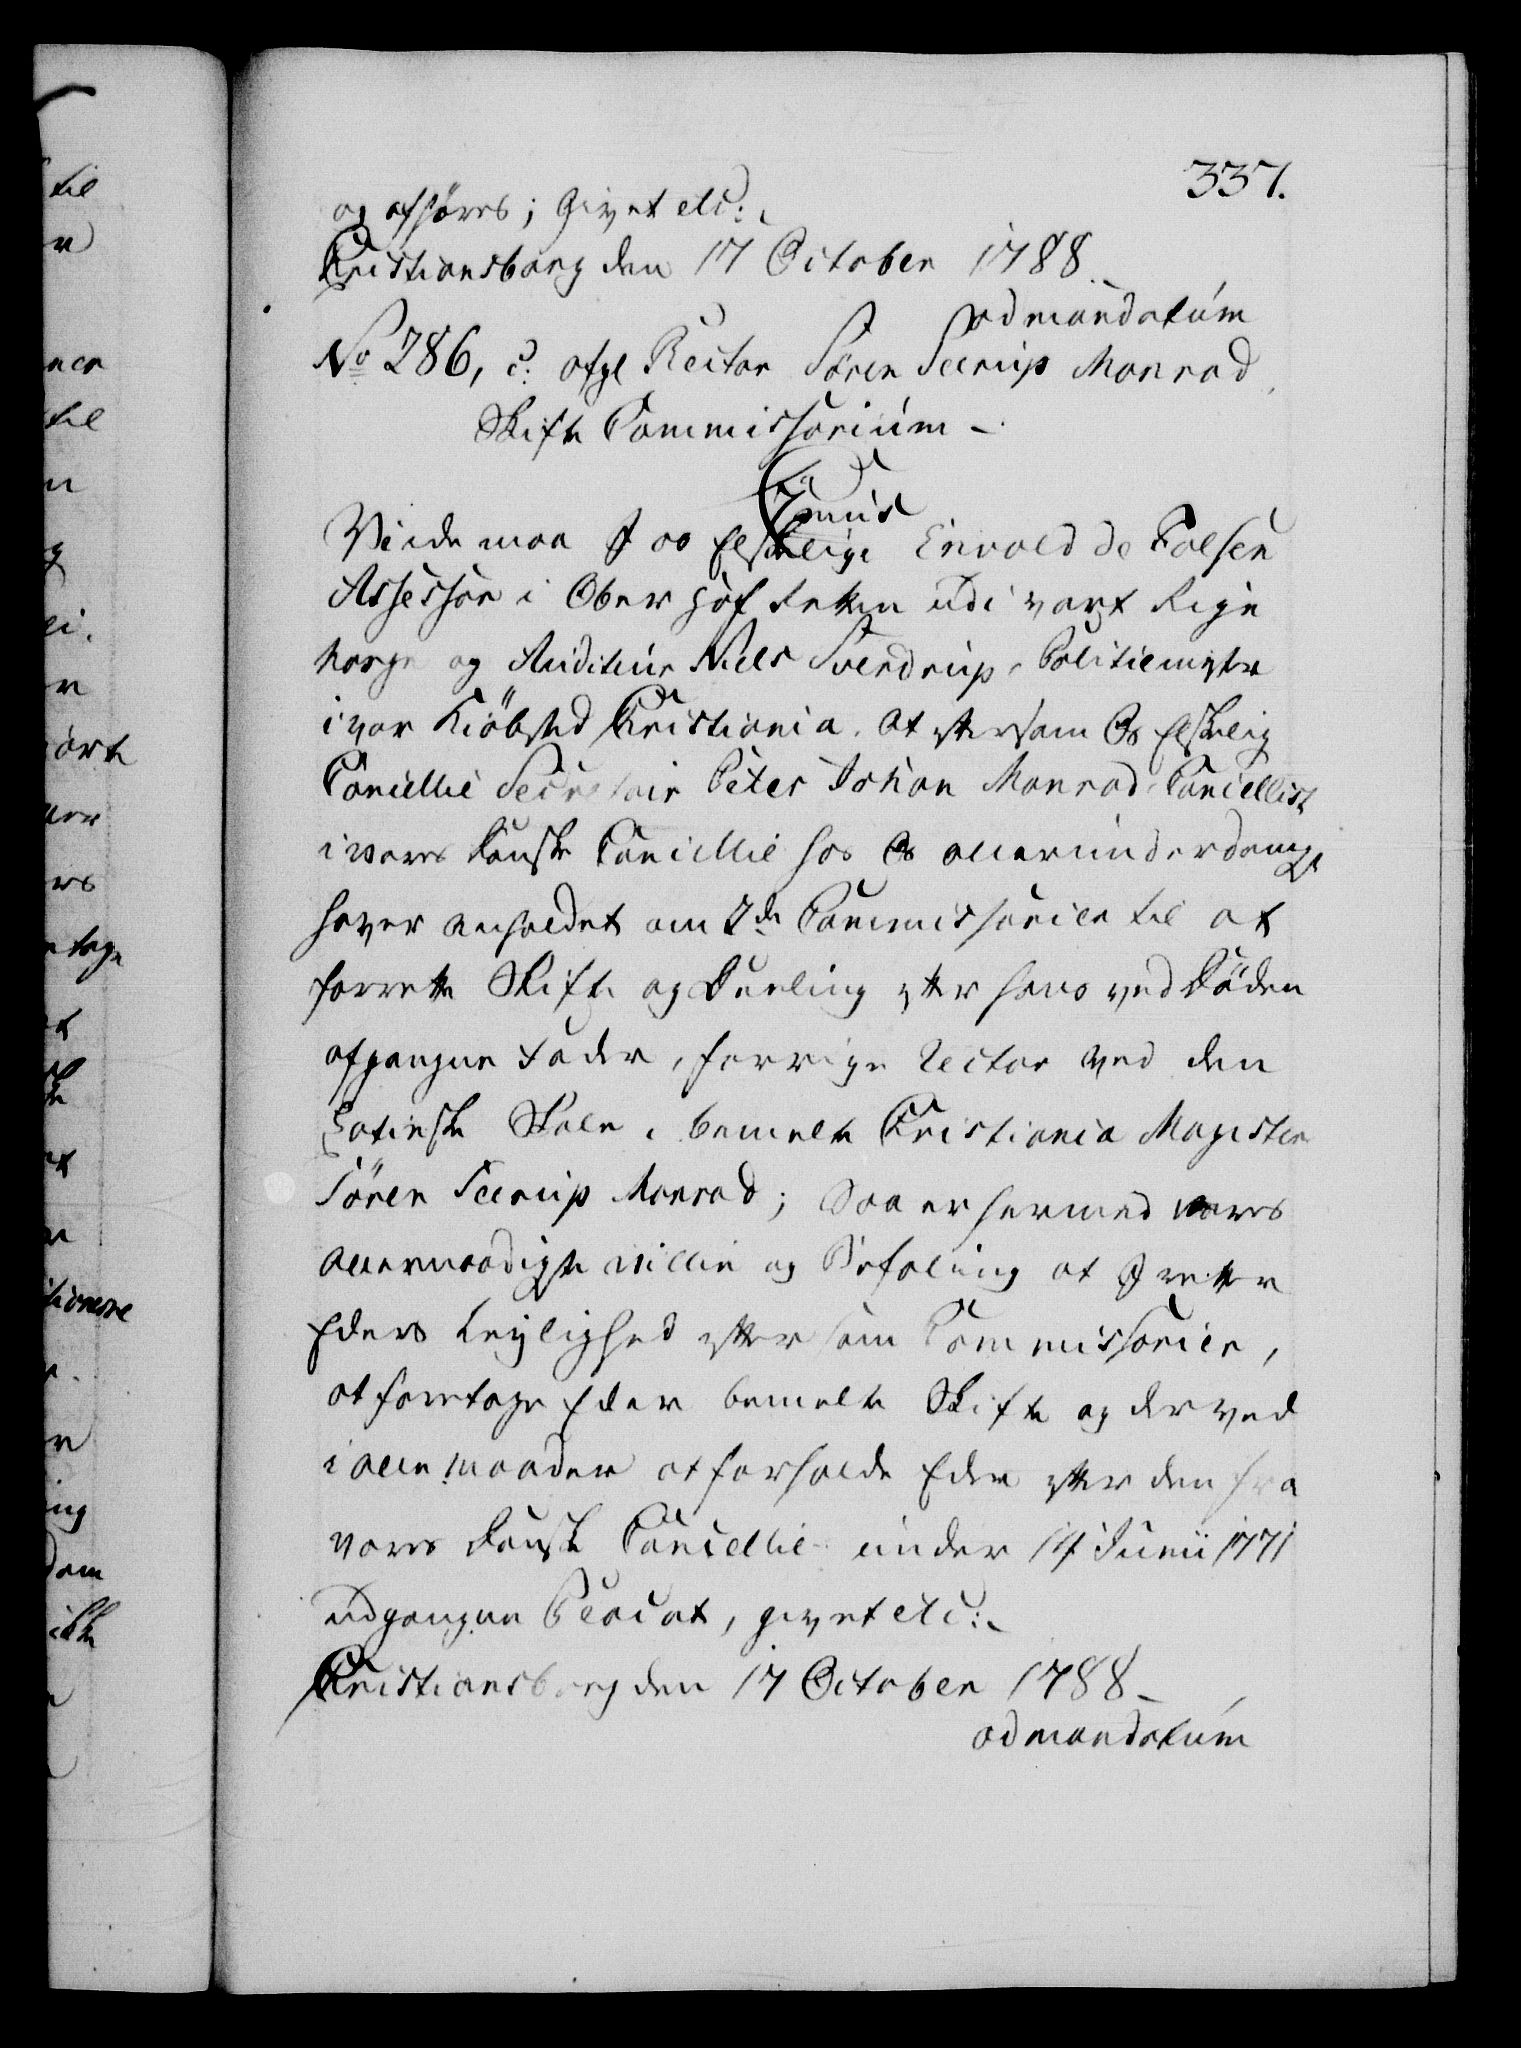 337.
og afhøres; Givet etc:
Christiansborg den 17 October 1788
ad mandatum
No 286, afgl Rector Søren Seerup Monrad
Skifte Commissorium
C 7mus
Viide maa I os Elskelige Envold de Falsen
Assessor i Ober Hof Retten udi vort Rige
Norge og Auditeur Niels Sverdrup, Politiemester
i vor Kiöbsted Christiania. At eftersom Os Elskelig
Cancellie Secretair Peter Johan Monrad Cancellist
i vores Danske Cancellie hos Os allerunderdanigst
haver anholdet om 2de Commissarier til at
forrette Skifte og Deeling efter hans ved Döden
afgangne Fader, forrige Rector ved den
Latinske Skole i bemelte Christiania Magister
Sören Seerup Monrad; Saa er hermed vores
allernaadigste villie og Befaling at I retter
Eders Leylighed efter som Commissarier,
at foretage Eder bemelte Skifte og derved
i alle maader at forholde Eder efter den fra
vores Danske Cancellie under 14 Junii 1771
udgangne Placat, givet etc:
Christiansborg den 17 October 1788
ad mandatum